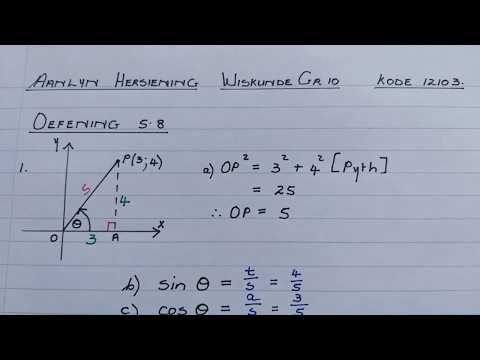 AANLYN HERSIENING WISKUNDE GR 10 KODE 12103.
OEFENING 5.8
1.
y
P(3;4)
5
4
θ
O
3
A
x
a) OP² = 3² + 4² [Pyth]
= 25
∴ OP = 5
b) sin θ = t/s = 4/5
c) cos θ = a/s = 3/5